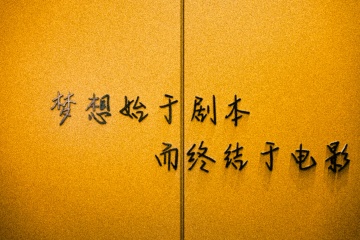 梦想始于剧本
而终结于电影